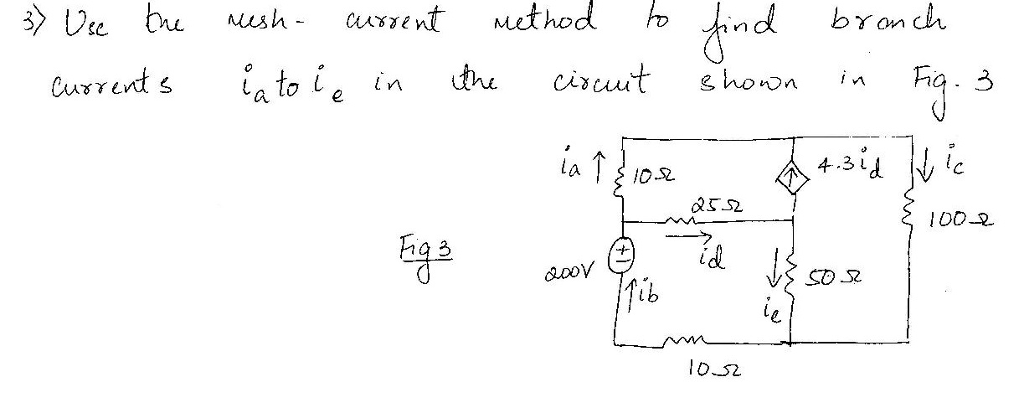 3) Use the mesh- current method to find branch
currents ia to ie in the circuit shown in Fig. 3
ia ↑ 10Ω 4.3id ↓ ic
25Ω 100Ω
Fig 3 200V + - id ↓ 50Ω
↑ ib ie
10Ω